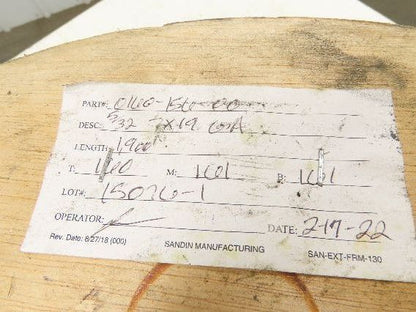 PART#: 0160-156-00
DESC: 5/32 7X19 GSA
LENGTH: 1,900'
T: 160 M: 161 B: 161
LOT#: 15036-1
OPERATOR:
DATE: 2-17-22
Rev. Date: 8/27/18 (000) SANDIN MANUFACTURING SAN-EXT-FRM-130